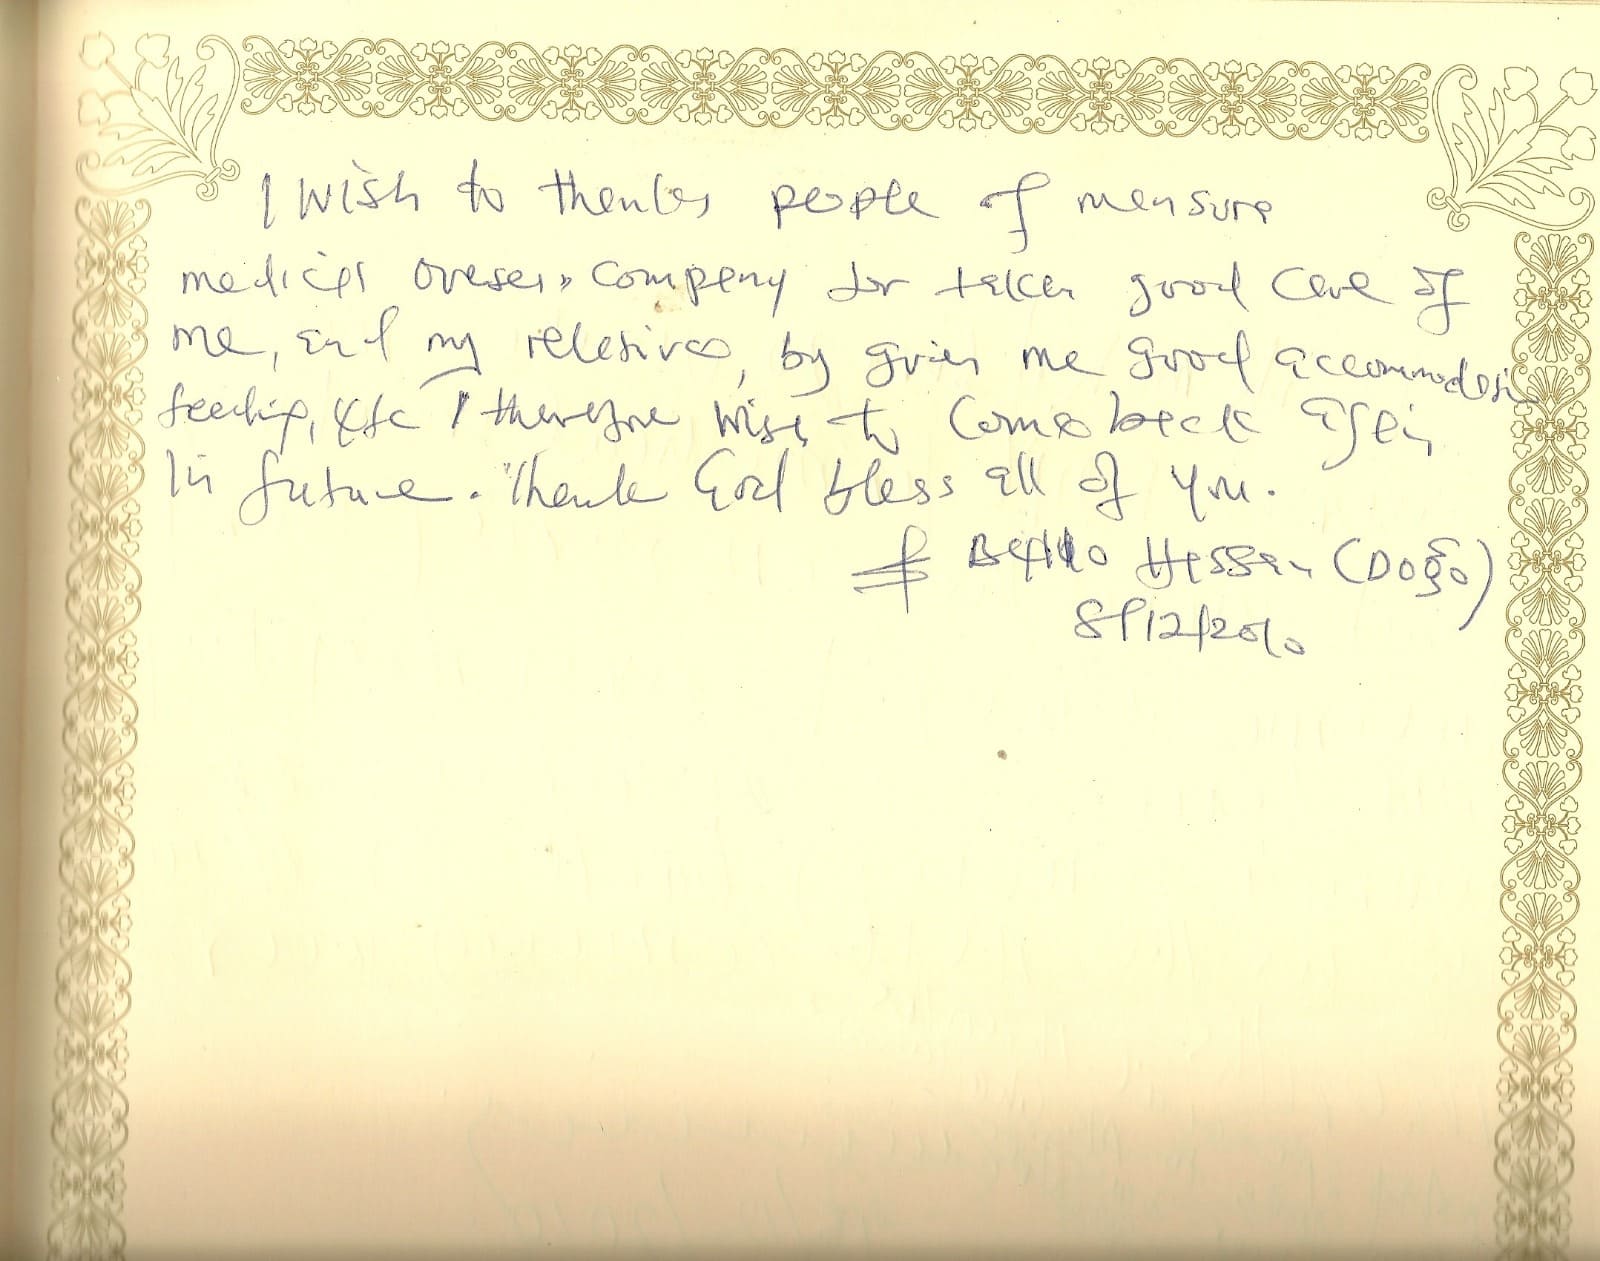 I wish to thanks people of mensure
medical oversea company for taken good care of
me, and my relatives, by given me good accommodation
feeding, etc I therefore wish to come back again
in future. Thank God bless all of you.
Bello Hassan (Dogo)
8/12/2010